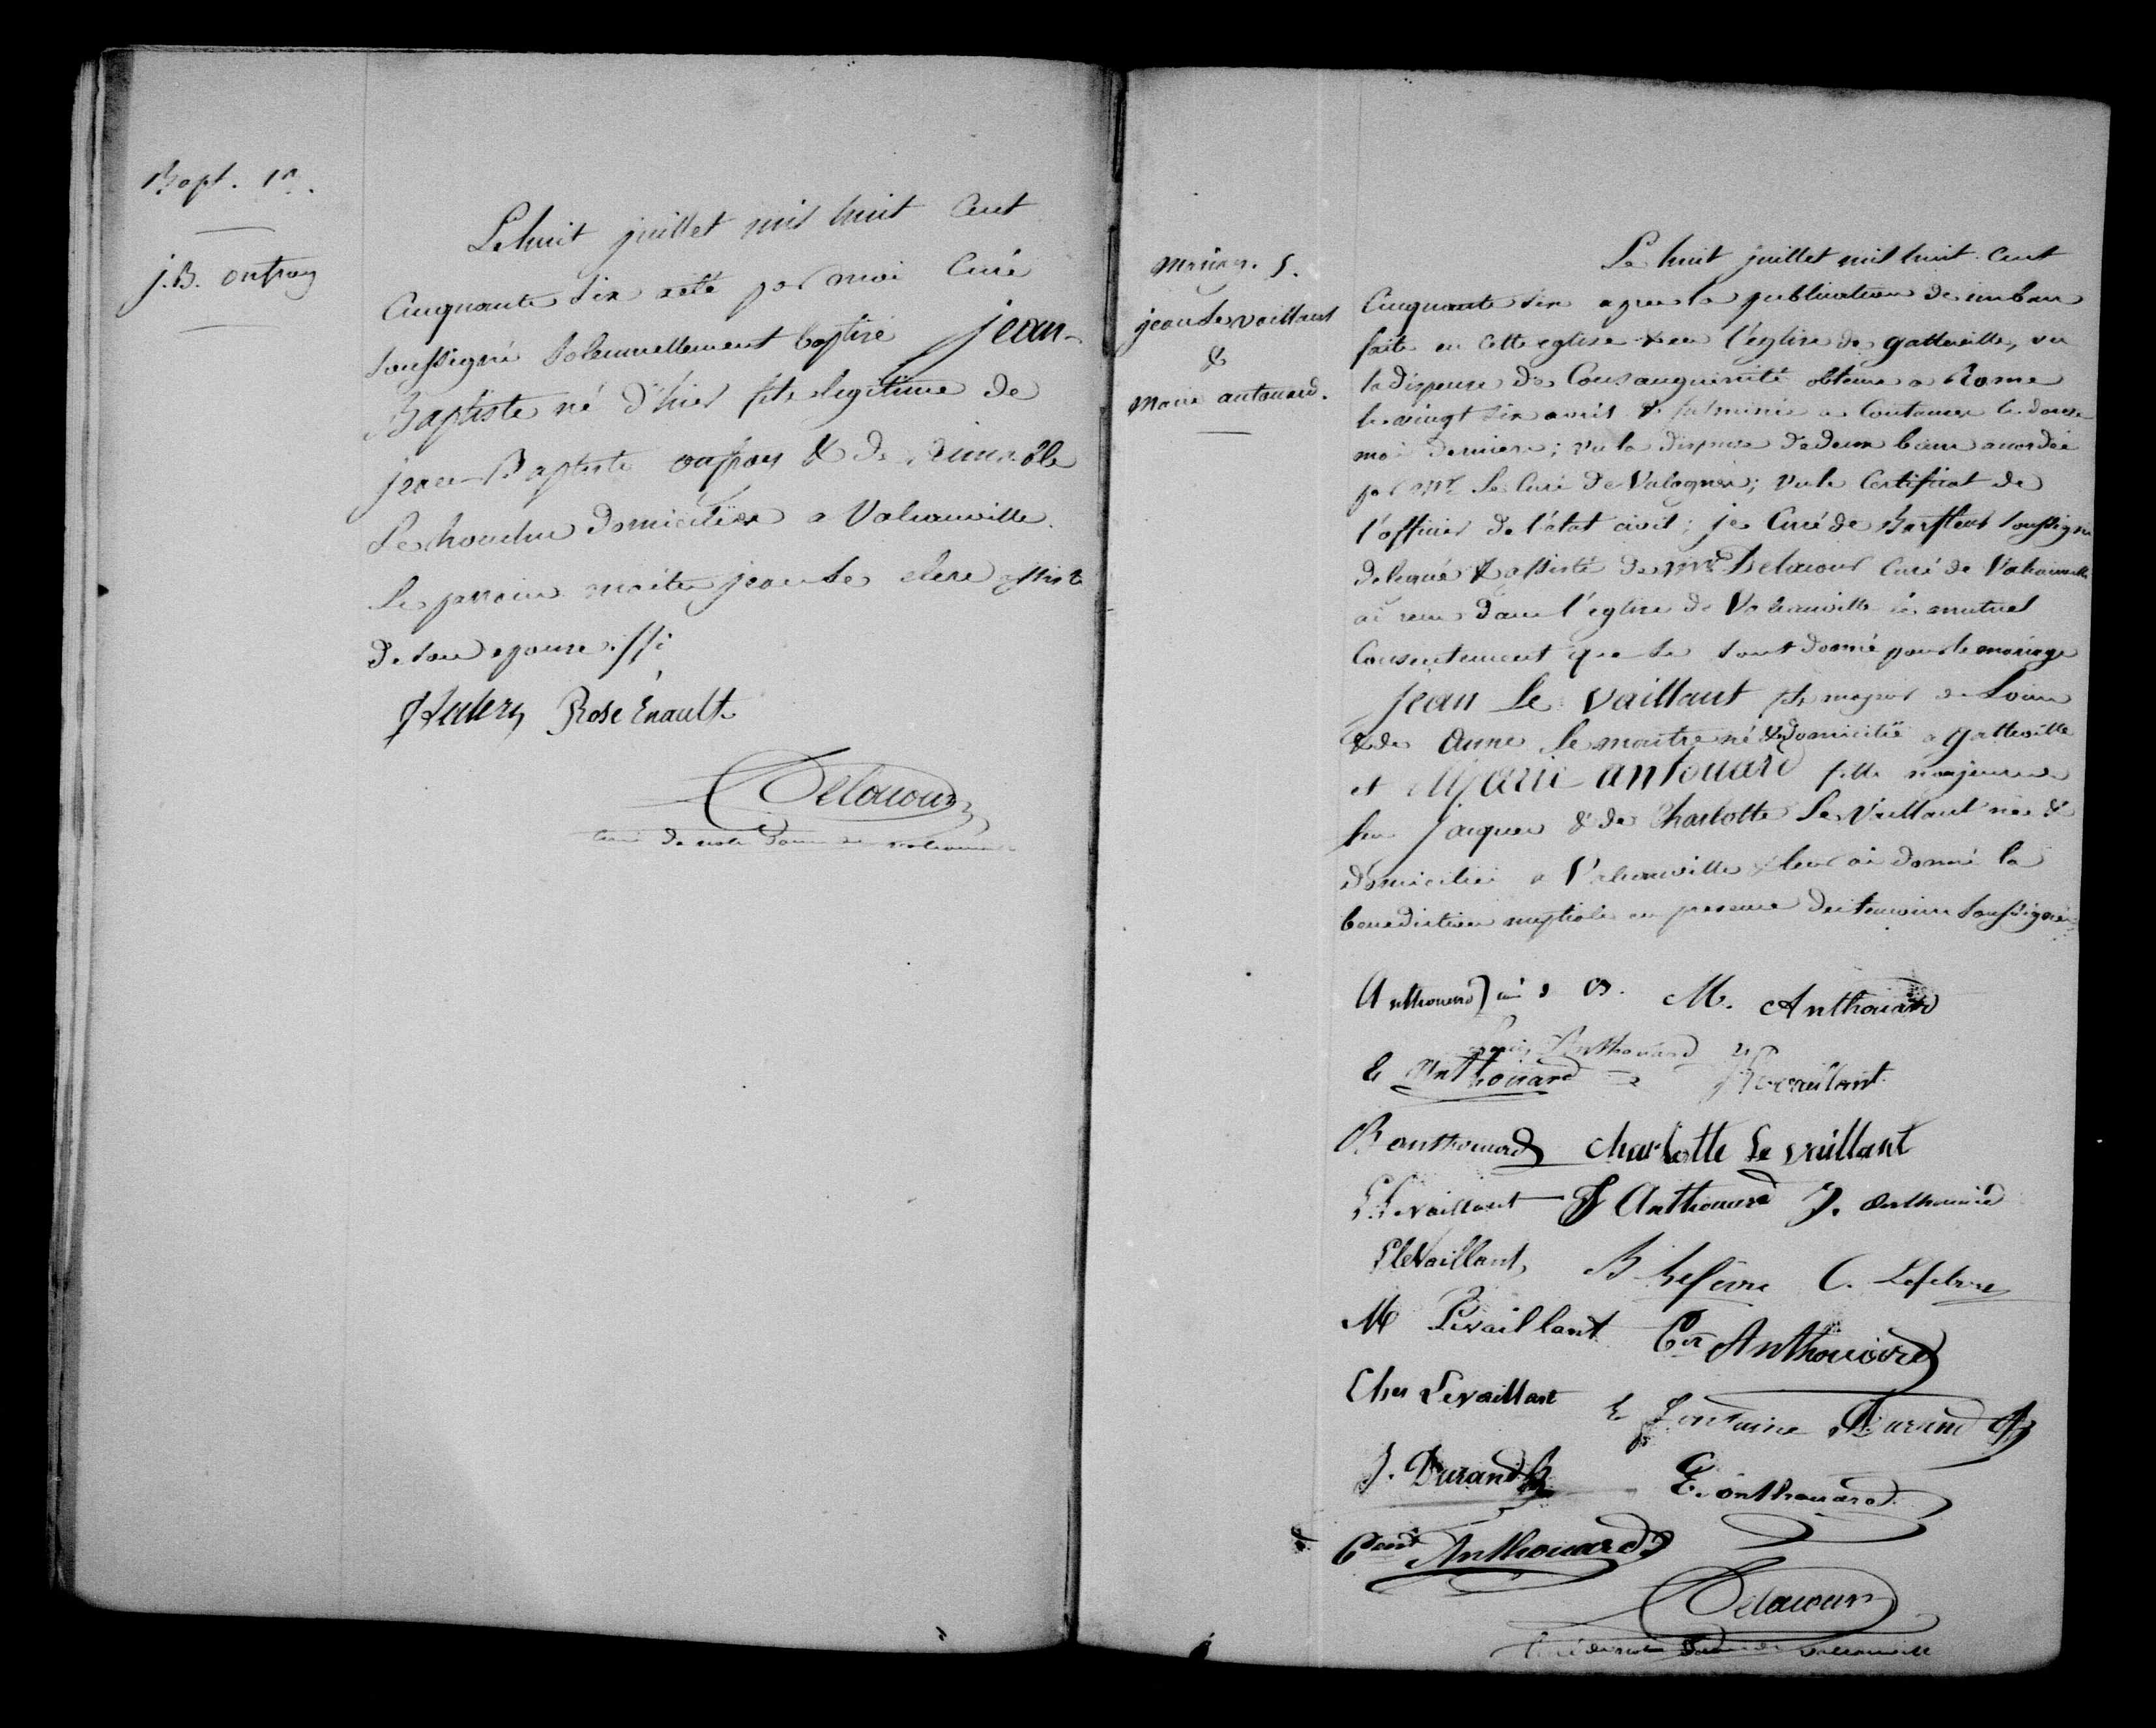 Bapt. 1r.
j.B. onfroy
Le huit juillet mil huit Cent
Cinquante Six a été par moi Curé
soussigné Solemnellement baptisé jean-
Baptiste né d'hier fils legitime de
jean-Baptiste onfroy & de
domiciliés a Valcanville.
Le parrain maitre jean Le clerc assisté
de son epouse
Rose Enault
Delacour
curé de notre Dame de valcanville
Mariag. 5.
jean Le vaillant
&
Marie antouard.
Le huit juillet mil huit Cent
Cinquante Six apres la publication de un ban
faite en cette eglise & en l'église de gatteville, vu
la dispense de Consanguinité obtenue a Rome
le vingt six avril & fulminée a Coutances le douze
mai dernier; vu la dispense de deux bans accordée
par Mr. Le Curé de Valognes; vu le Certificat de
l'officier de l'état civil; je Curé de Barfleur soussigné
delegué & assisté de Mr Delacour Curé de Valcanville
ai reçu dans l'eglise de Valcanville le mutuel
Consentement que se sont donné pour le mariage
jean Le Vaillant fils majeur de Louis
& de Anne Le maitre né & domicilié a gatteville
et Marie antouard fille majeure de
feu jacques & de Charlotte Le Vaillant née &
domiciliée a Valcanville & leur ai donné la
benediction nuptiale en presence des temoins soussignés
Anthouard M. Anthouard
Anthouard
E Anthouard Levaillant
B anthouard charlotte Le vaillant
Levaillant F Anthouard J. anthouard
P leVaillant B Lefevre C. Lefebvre
M Levaillant Anthouard
Ches Levaillant E fontaine Durand
J. Durand E. anthouard
Anthouard
Delacour
Curé de notre Dame de valcanville